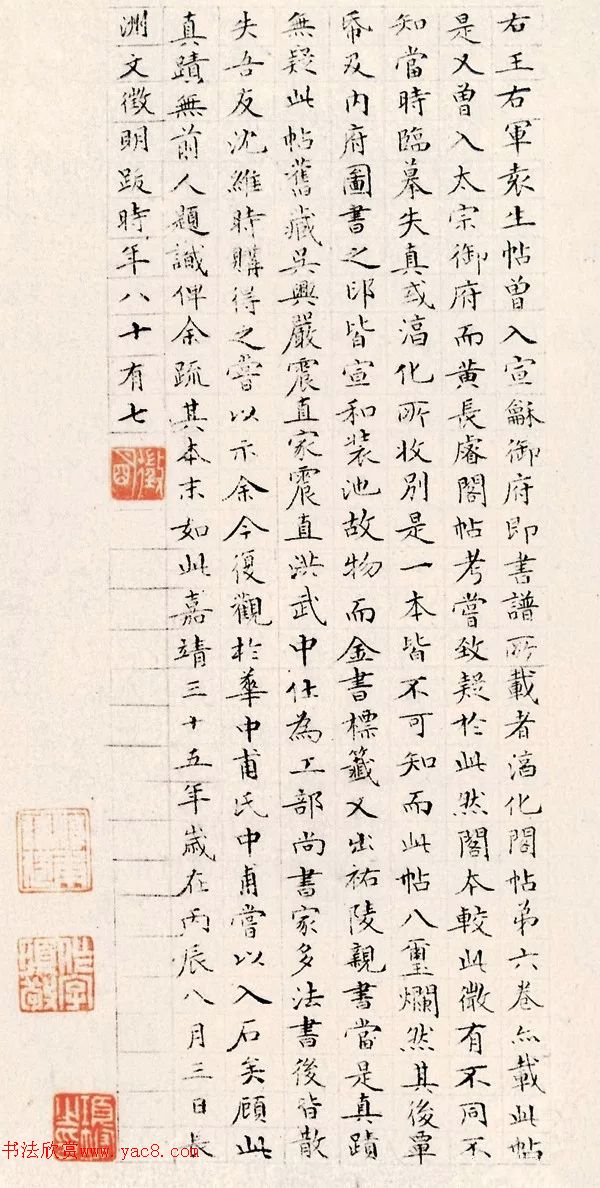 右王右軍袁生帖曾入宣龢御府即書譜所載者淳化閣帖第六卷亦載此帖
是又曾入太宗御府而黃長睿閣帖考嘗致疑於此然閣本較此微有不同不
知當時臨摹失真或淳化所收別是一本皆不可知而此帖八璽爛然其後覃
帋及內府圖書之印皆宣和裝池故物而金書標籤又出祐陵親書當是真蹟
無疑此帖舊藏吳興嚴震直家震直洪武中仕為工部尚書家多法書後皆散
失吾友沈維時購得之嘗以示余今復觀於華中甫氏中甫嘗以入石矣顧此
真蹟無前人題識俾余疏其本末如此嘉靖三十五年歲在丙辰八月三日長
洲文徵明跋時年八十有七
徵明
书法欣赏www.yac8.com